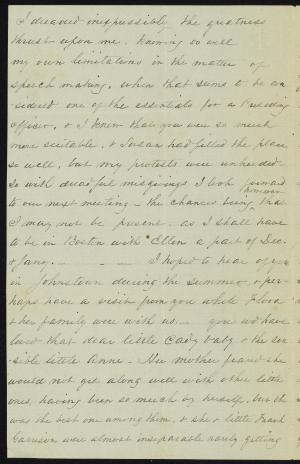 I dreaded inexpressibly the greatness
thrust upon me. Knowing so well
my own limitations in the matter of
speech making, when that seems to be con-
sidered one of the essentials for a Presiding
Officer, & I knew that you were so much
more suitable, & Susan had filled the place
so well, but my protests were unheeded.
So with dreadful misgivings I look forward
to our next meeting - the chances being, however, that
I may not be present, as I shall have
to be in Boston with Ellen a part of Dec.
& Jany. - - - I hoped to hear of you
in Johnstown during the summer, & per-
haps have a visit from you while Flora
& her family were with us. - you wd have
loved that dear little Cady baby & the sen-
sible little Anne - Her mother feared she
would not get along well with other little
ones, having been so much by herself, but she
was the best one among them, & she & little Frank
Garrison were almost inseparable rarely getting